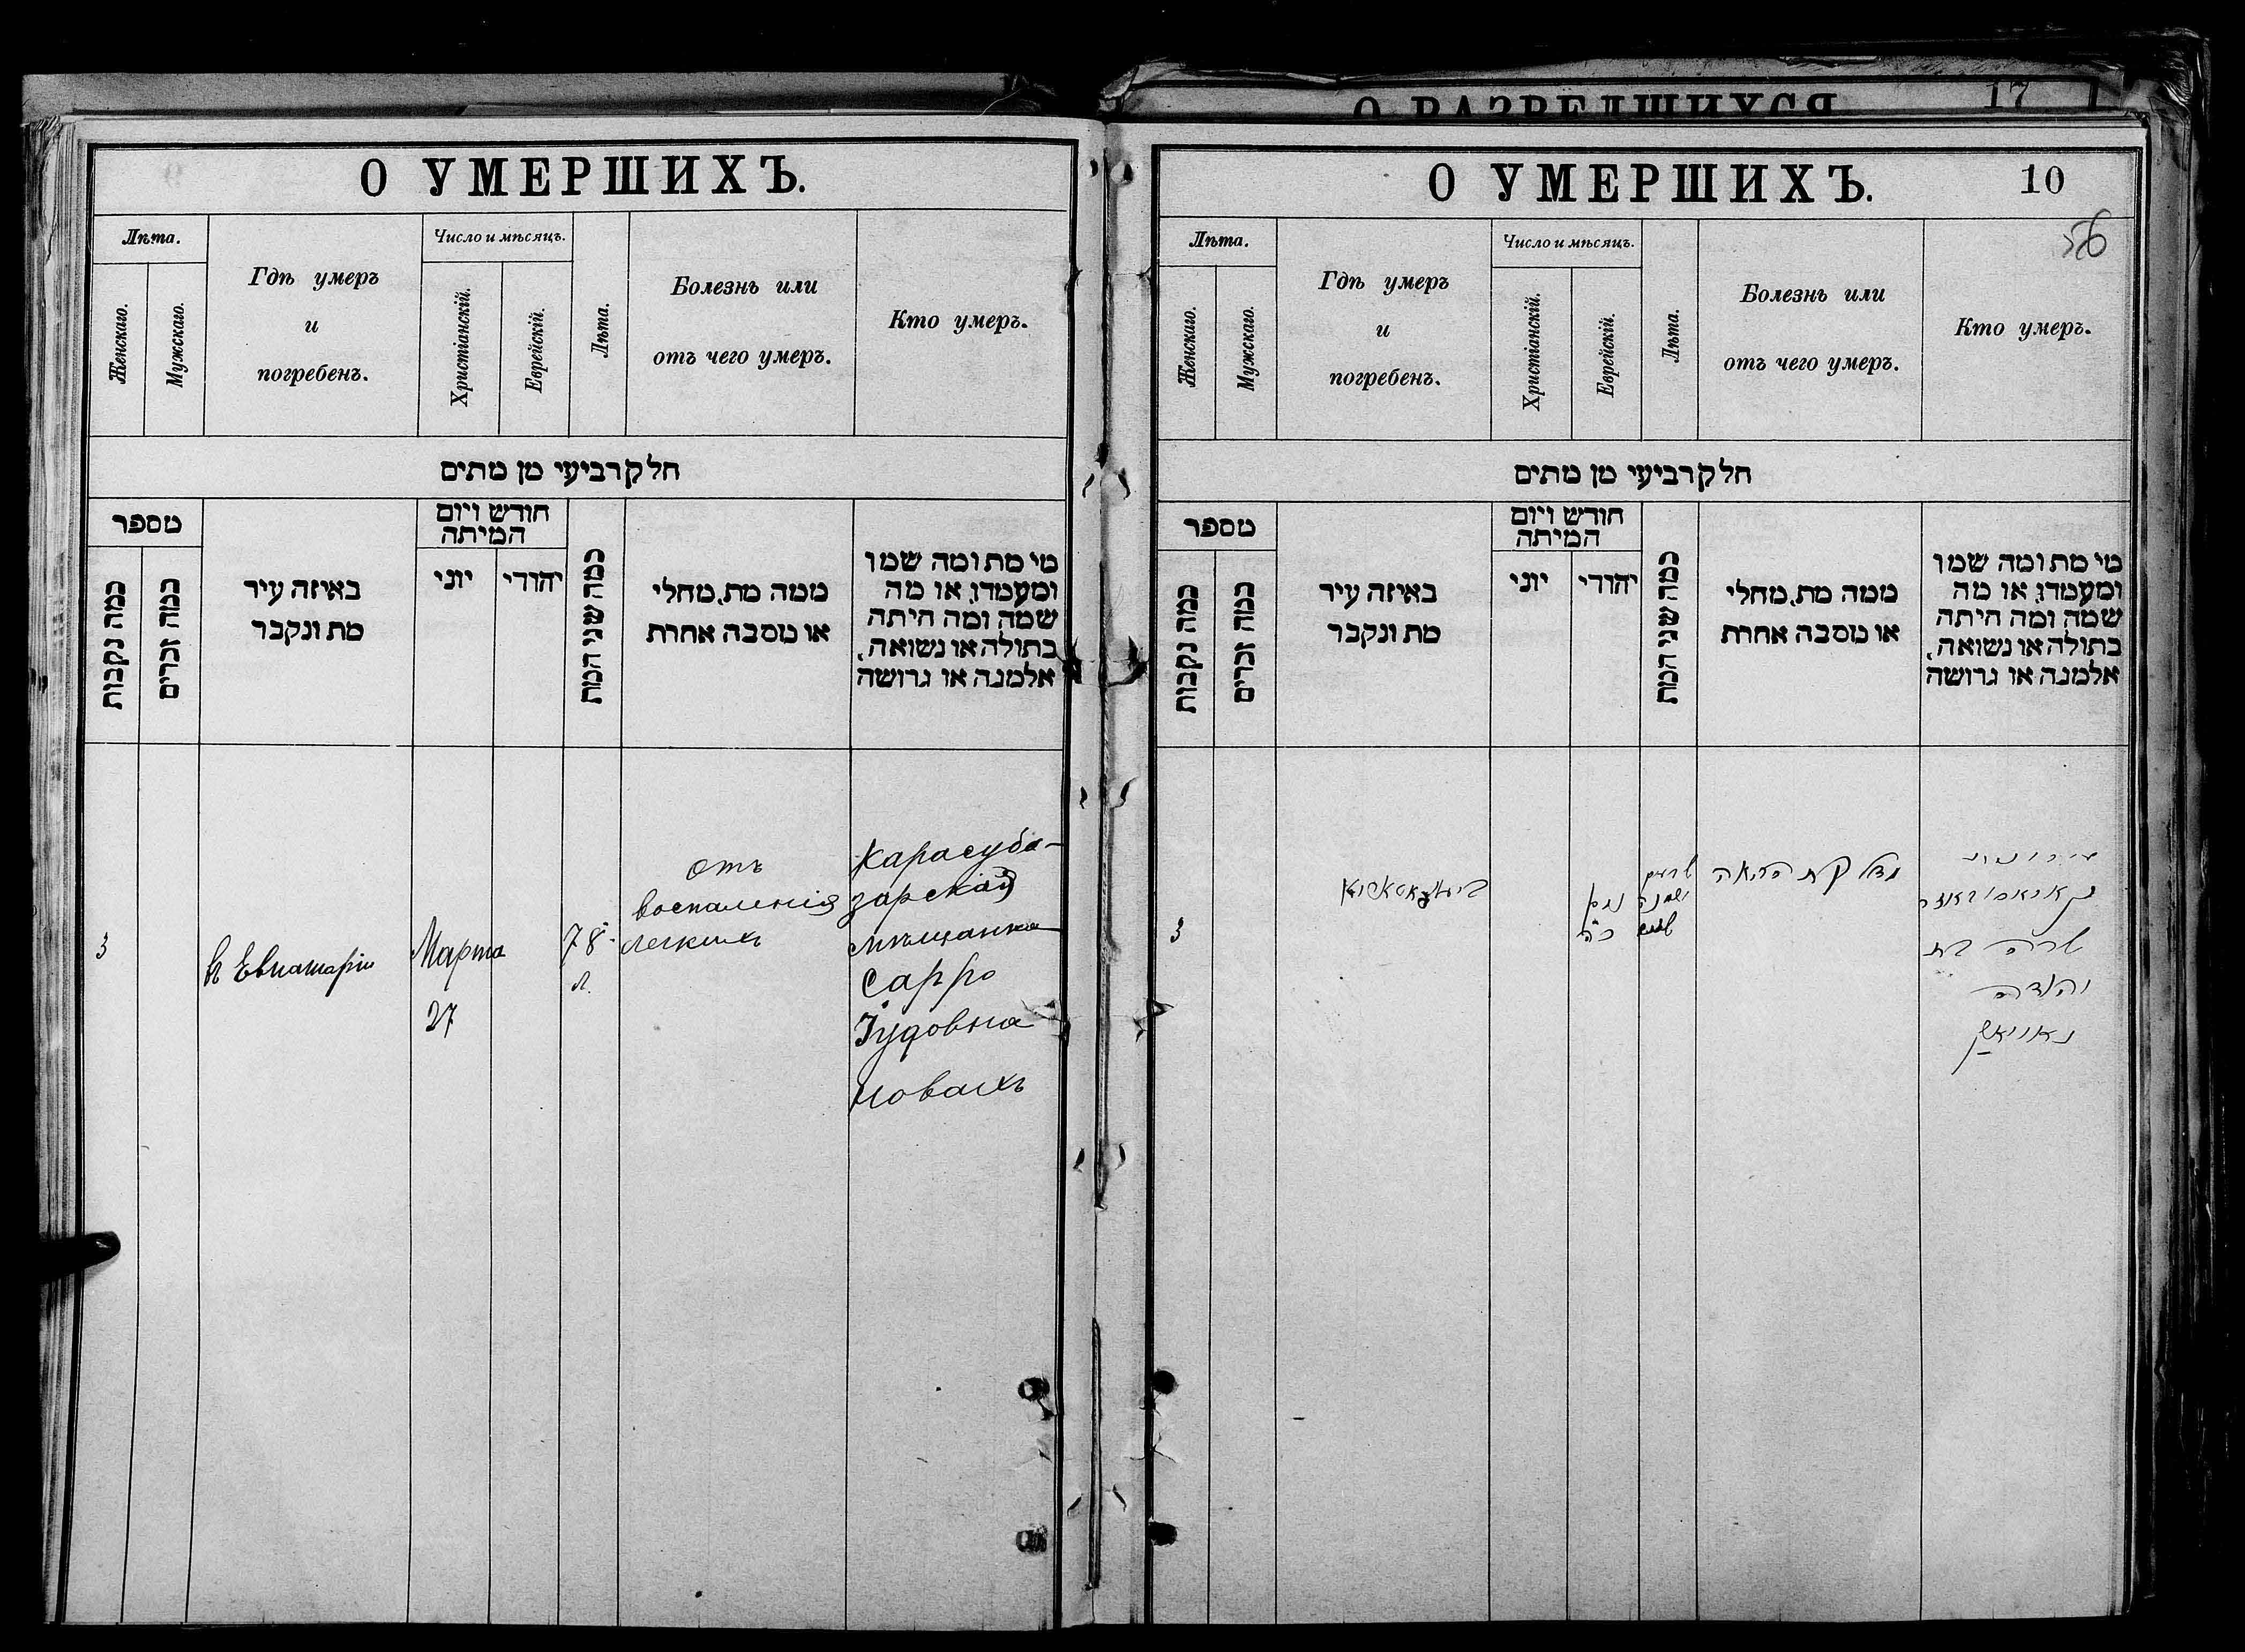 О РАЗВЕДШИХСЯ
17
О УМЕРШИХЪ.
Лѣта.
Женскаго.
Мужскаго.
Гдѣ умеръ
и
погребенъ.
Число и мѣсяцъ.
Христіанскій.
Еврейскій.
Лѣта.
Болезнь или
отъ чего умеръ.
Кто умеръ.
חלק רביעי מן מתים
מספר
כמה נקבות
כמה זכרים
באיזה עיר
מת ונקבר
חודש ויום
המיתה
יוני
יהודי
כמה שני המת
ממה מת, מחלי
או מסבה אחרת
מי מת ומה שמו
ומעמדו, או מה
שמה ומה היתה
בתולה או נשואה,
אלמנה או גרושה
3
въ Евпаторіи
Марта
27
78
л.
отъ
воспаленія
легкихъ
Карасуба-
зарская
мѣщанка
Сарра
Іудовна
Новакъ
О УМЕРШИХЪ.
10
56
Лѣта.
Женскаго.
Мужскаго.
Гдѣ умеръ
и
погребенъ.
Число и мѣсяцъ.
Христіанскій.
Еврейскій.
Лѣта.
Болезнь или
отъ чего умеръ.
Кто умеръ.
חלק רביעי מן מתים
מספר
כמה נקבות
כמה זכרים
באיזה עיר
מת ונקבר
חודש ויום
המיתה
יוני
יהודי
כמה שני המת
ממה מת, מחלי
או מסבה אחרת
מי מת ומה שמו
ומעמדו, או מה
שמה ומה היתה
בתולה או נשואה,
אלמנה או גרושה
3
ניסן
שבעים
ושמנה
שנים
הריאה
שרה בת
יהודה